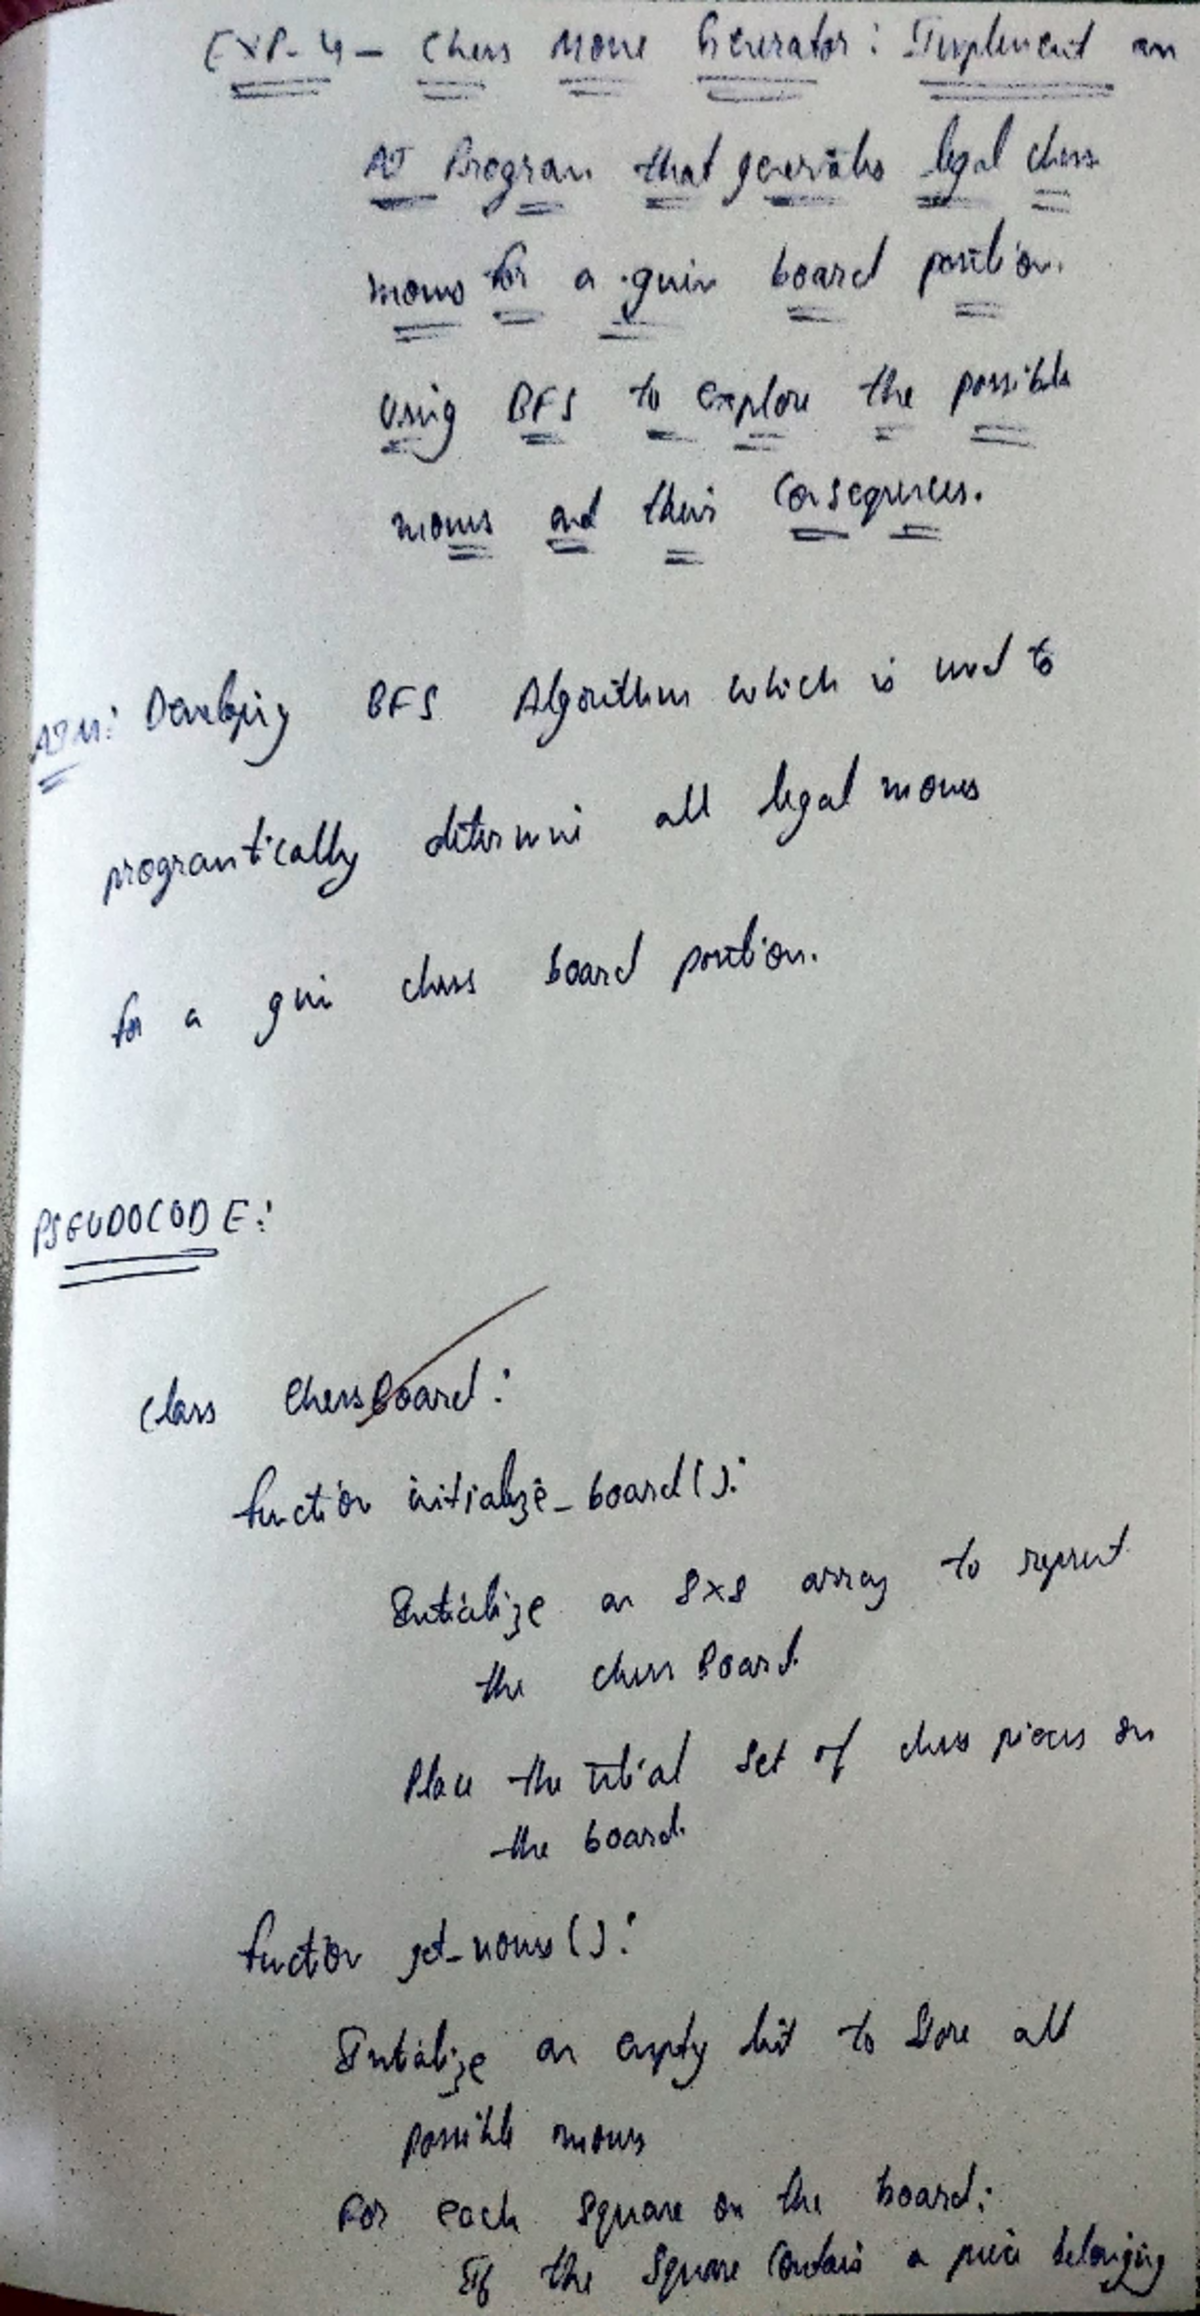 EXP-4 - Chess Move Generator: Implement an
AI Program that generates legal chess
moves for a given board position.
Using BFS to explore the possible
moves and their consequences.
AIM: Developing BFS Algorithm which is used to
programtically determine all legal moves
for a given chess board position.
PSEUDOCODE:
Class ChessBoard:
function initialize_board():
Initialize an 8x8 array to represent
the chess Board.
Place the initial set of chess pieces on
the board.
function get_moves():
Initialize an empty list to store all
possible moves
For each square on the board:
If the square contains a piece belonging